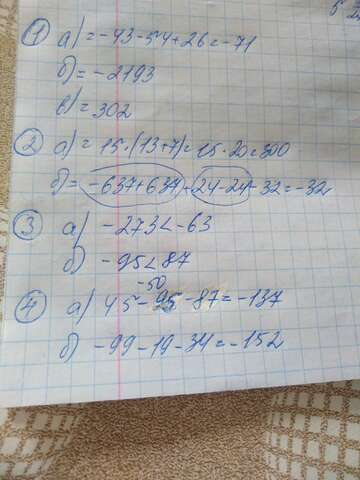 1 а) = -43-54+26=-71
б) = -2193
в) = 302
2 а) = 15·(13+7)=15·20=300
б) = -637+637+24-24-32=-32
3 а) -273<-63
б) -95<87
-50
4 а) 45-95-87=-137
б) -99-19-34=-152